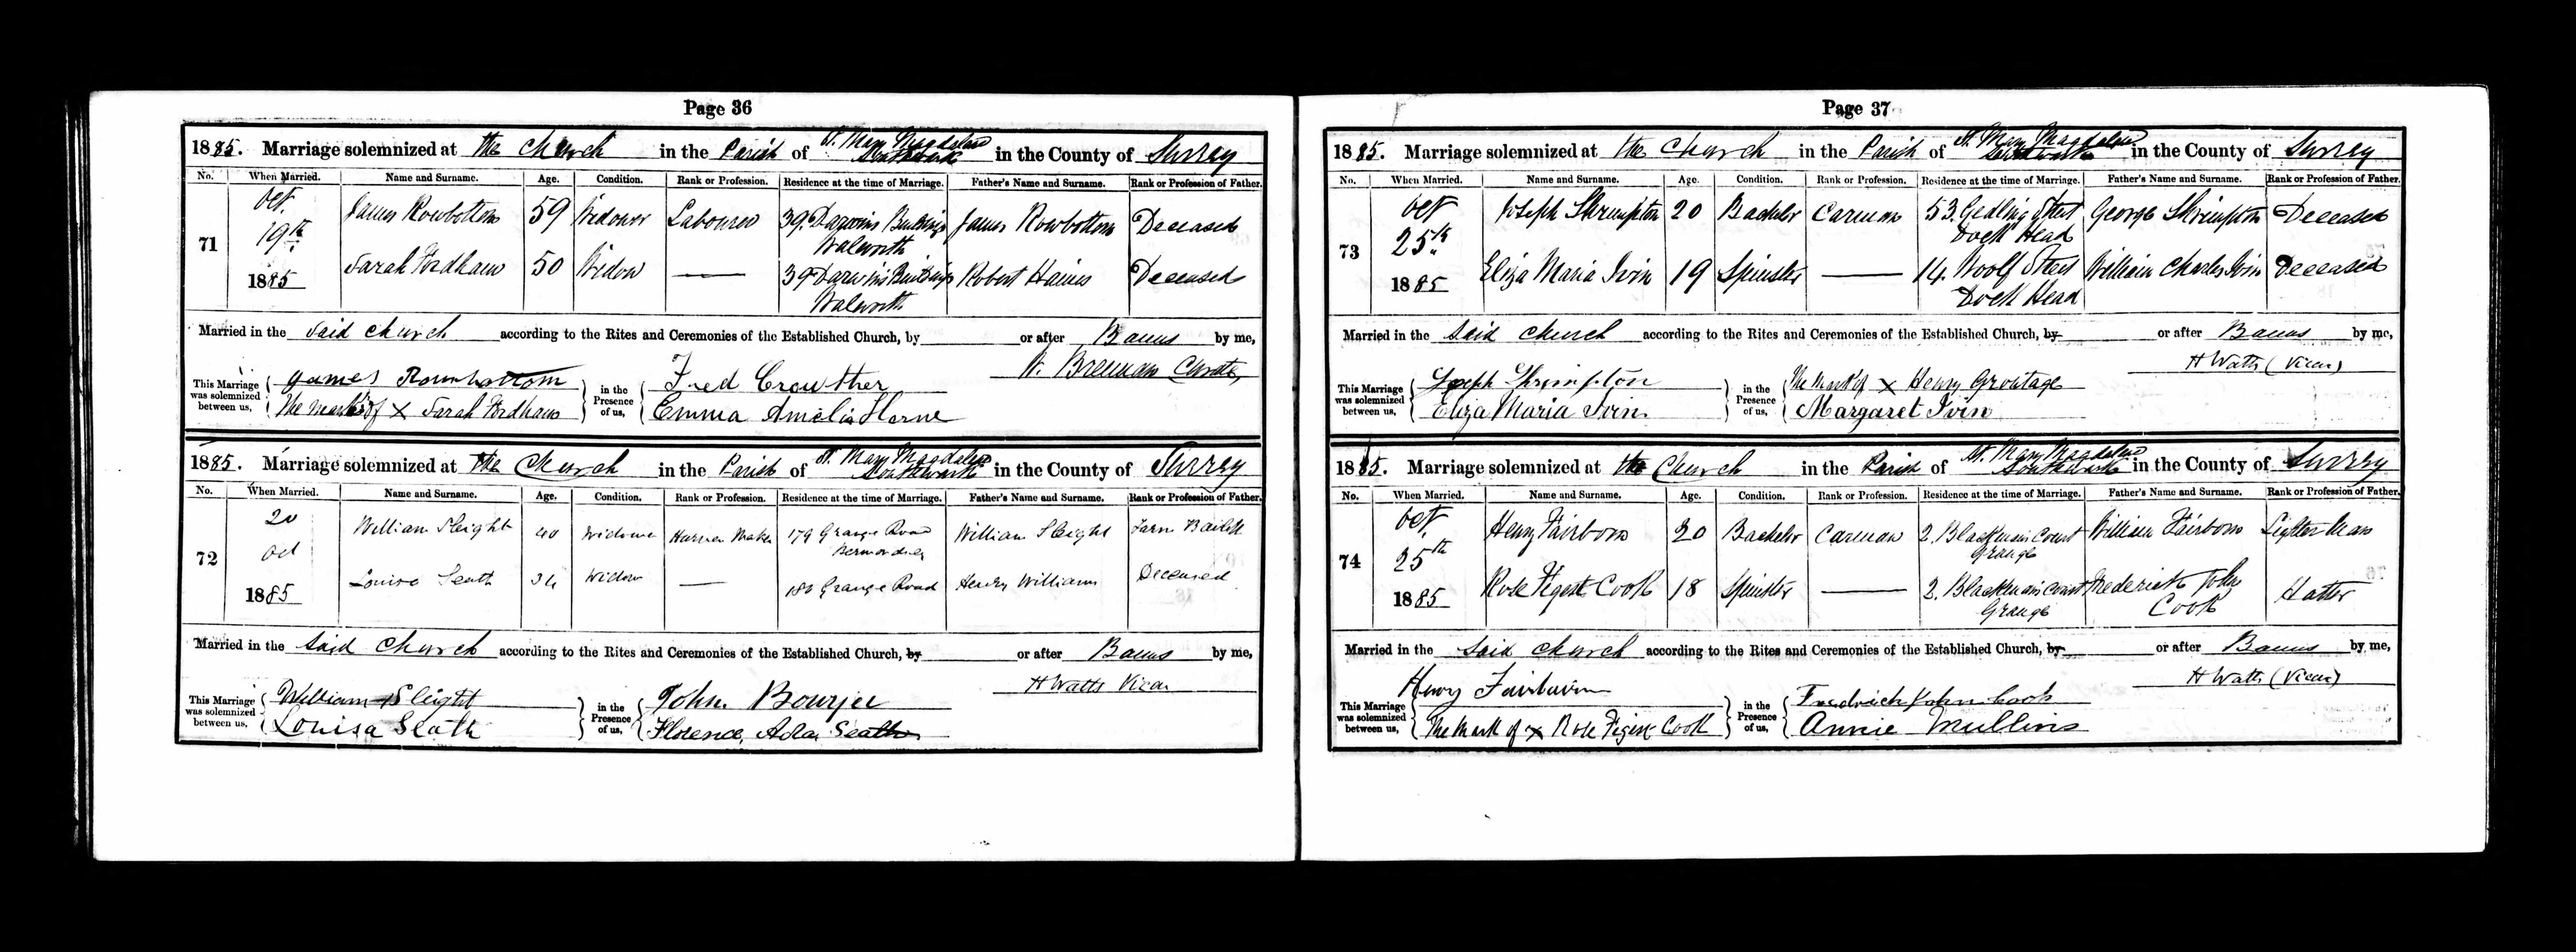 Page 36
1885. Marriage solemnized at the Church in the Parish of St. Mary Magdalene Southwark in the County of Surrey
No. When Married. Name and Surname. Age. Condition. Rank or Profession. Residence at the time of Marriage. Father's Name and Surname. Rank or Profession of Father.
71 Oct. 19th 1885
James Rowbottom 59 Widower Labourer 39. Darwins Buildings Walworth James Rowbottom Deceased
Sarah Fordham 50 Widow — 39 Darwins Buildings Walworth Robert Haines Deceased
Married in the said church according to the Rites and Ceremonies of the Established Church, by or after Banns by me,
Brennan Curate,
This Marriage was solemnized between us, James Rowbottom in the Presence of us, Fred Crowther
The mark of X Sarah Fordham Emma Amelia Horne
1885. Marriage solemnized at the Church in the Parish of St. Mary Magdalene Southwark in the County of Surrey
No. When Married. Name and Surname. Age. Condition. Rank or Profession. Residence at the time of Marriage. Father's Name and Surname. Rank or Profession of Father.
72 20 Oct 1885
William Sleight 40 Widower Harness Maker 179 Grange Road Bermondsey William Sleight Farm Bailiff
Louisa Seath Widow — Grange Road Henry Williams Deceased
Married in the said church according to the Rites and Ceremonies of the Established Church, by or after Banns by me,
H Watts Vicar
This Marriage was solemnized between us, William Sleight in the Presence of us, John Bourjee
Louisa Seath Florence Ada Seath
Page 37
1885. Marriage solemnized at the Church in the Parish of St. Mary Magdalene Southwark in the County of Surrey
No. When Married. Name and Surname. Age. Condition. Rank or Profession. Residence at the time of Marriage. Father's Name and Surname. Rank or Profession of Father.
73 Oct 25th 1885
Joseph Shrimpton 20 Bachelor Carman 53. Gedling Street Dock Head George Shrimpton Deceased
Eliza Maria Ivin 19 Spinster — 14. Woolf Street Dock Head William Charles Ivin Deceased
Married in the said church according to the Rites and Ceremonies of the Established Church, by or after Banns by me,
H Watts (Vicar)
This Marriage was solemnized between us, Joseph Shrimpton in the Presence of us, The Mark of X Henry Groutage
Eliza Maria Ivin. Margaret Ivin
1885. Marriage solemnized at the Church in the Parish of St. Mary Magdalene Southwark in the County of Surrey
No. When Married. Name and Surname. Age. Condition. Rank or Profession. Residence at the time of Marriage. Father's Name and Surname. Rank or Profession of Father.
74 Oct. 25th 1885
Henry Fairborn 20 Bachelor Carman 2. Blackmans Court Grange William Fairborn Lighterman
Rose Cook 18 Spinster — 2. Blackmans Court Grange Frederick John Cook Hatter
Married in the said church according to the Rites and Ceremonies of the Established Church, by or after Banns by me,
H Watts (Vicar)
This Marriage was solemnized between us, Henry Fairbairn in the Presence of us, Fredrick John Cook
The Mark of X Rose Cook Annie Mullins